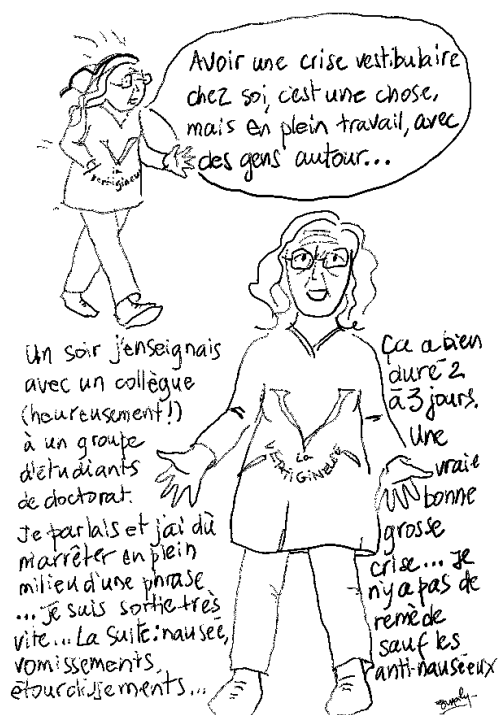 Avoir une crise vestibulaire
chez soi, c'est une chose,
mais en plein travail, avec
des gens autour...
V
la
vertigineuse
Un soir j'enseignais
avec un collègue
(heureusement!)
à un groupe
d'étudiants
de doctorat.
Je parlais et j'ai dû
m'arrêter en plein
milieu d'une phrase
... Je suis sortie très
vite... La suite: nausée,
vomissements,
étourdissements...
V
la
VERTIGINEUSE
Ça a bien
duré 2
à 3 jours.
Une
vraie
bonne
grosse
crise... Je
n'y a pas de
remède
sauf les
anti-nauséeux